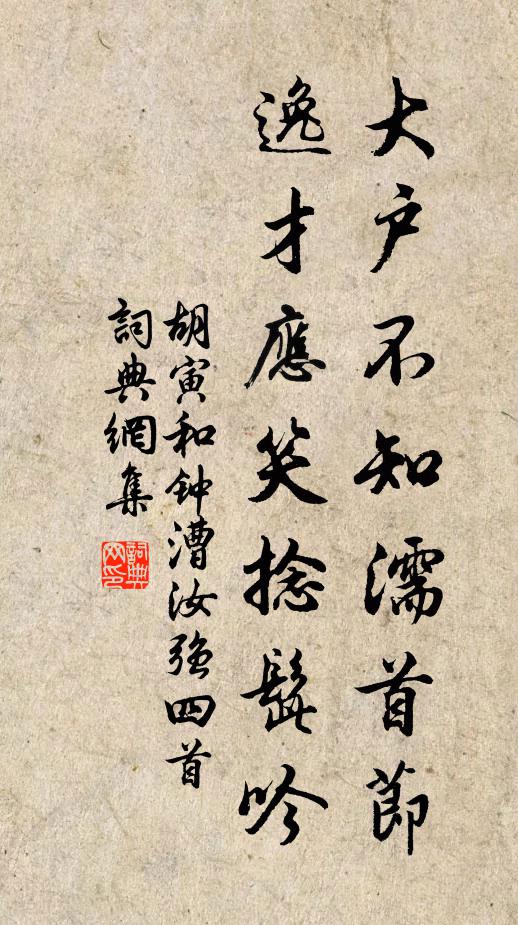 大户不知濡首節
逸才應笑捻髭吟
胡寅和钟漕汝强四首
詞典網集
詞典网印